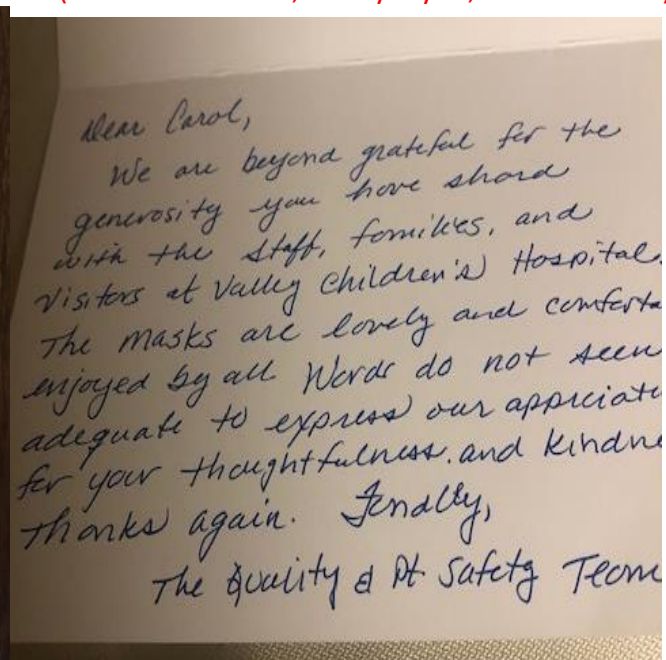 Dear Carol,
We are beyond grateful for the
generosity you have shard
with the staff, families, and
visitors at Valley Children's Hospital.
The masks are lovely and comforta
enjoyed by all Words do not seem
adequate to express our appriciati
for your thoughtfulness. and kindne
Thanks again. Fondly,
The Quality & Pt Safety Team